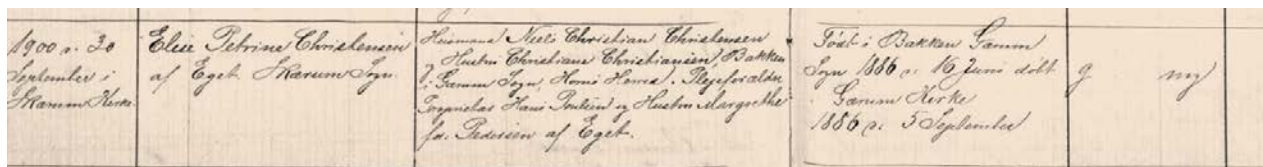 1900 d. 30
September i
Skærum Kirke.
Elise Petrine Christensen
af Eget. Skærum Sogn
Huusmand Niels Christian Christensen
og Hustru Christiane Christiansen, Bakken
i Gærum Sogn, Horns Herred. Plejeforældre
Proprietær Hans Poulsen og Hustru Margrethe
fd. Pedersen af Eget.
Født i Bakken Gærum
Sogn 1886 d. 16 Juni døbt
i Gærum Kirke
1886 d. 5 September
g
mg